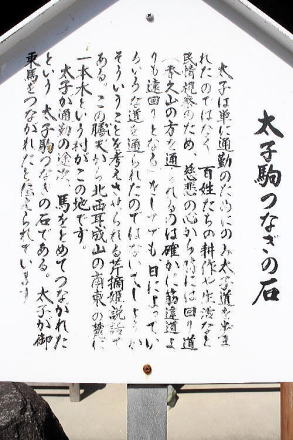 太子駒つなぎの石
太子は単に通勤のためにのみ太子道を通ま
れたのではなく、百姓たちの耕作や生活など
民情視察のため、慈悲の心から時には回り道
(香久山の方を通られるのは確かに筋違道よ
りも遠回りとなる)をしてでも、日によってい
ろいろな道を通られたのではないでしょうか
そういうことを考えさせられる芹摘姫説話で
ある。この膳夫から北西耳成山の南東の麓に
一本木という村がこの地です。
太子が通勤の途次、馬をとめてつながれた
という 太子駒つなぎの石である。太子が御
乗馬をつながれたと伝えられています